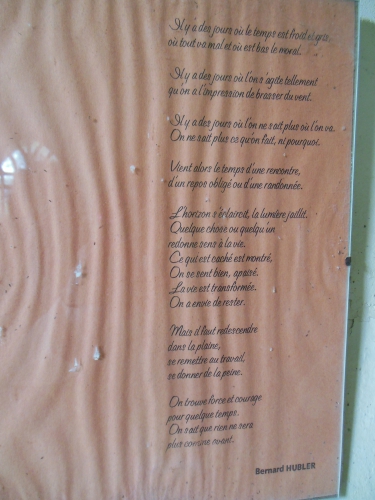 Il y a des jours où le temps est froid et gris
où tout va mal et où est bas le moral.
Il y a des jours où l'on s'agite tellement
qu'on a l'impression de brasser du vent.
Il y a des jours où l'on ne sait plus où l'on va.
On ne sait plus ce qu'on fait, ni pourquoi.
Vient alors le temps d'une rencontre,
d'un repos obligé ou d'une randonnée.
L'horizon s'éclaircit, la lumière jaillit.
Quelque chose ou quelqu'un
redonne sens à la vie.
Ce qui est caché est montré,
On se sent bien, apaisé.
La vie est transformée.
On a envie de rester.
Mais il faut redescendre
dans la plaine,
se remettre au travail,
se donner de la peine.
On trouve force et courage
pour quelque temps.
On sait que rien ne sera
plus comme avant.
Bernard HUBLER